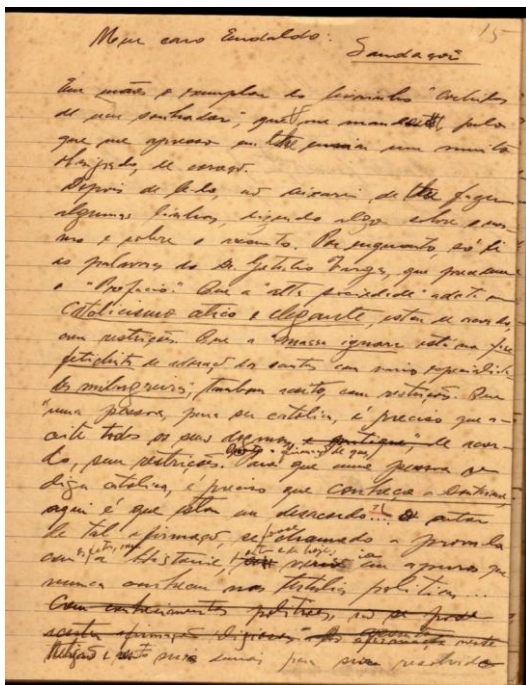 15
Meu caro Eudaldo:
Saudações
Em mãos o exemplar do livrinho "
de um sonhador", que me mandou, pelo
que me apresso em lhe enviar um muito
obrigado, de coração.
Depois de lê-lo, não deixarei de lhe fazer
algumas linhas, dizendo algo sobre o mes-
mo e sobre o assunto. Por enquanto, só li
as palavras do Dr. Getulio Vargas, que precedem
o "Prefacio". Que a "alta sociedade" adota um
catolicismo atico e elegante, estou de acordo,
com restrições. Que a "massa ignara está na fase
fetichista de adoração dos santos com suas especialida-
des milagreiras", tambem aceito, com restrições. Que
"uma pessoa, para ser catolica, é preciso que a-
ceite todos os seus dogmas, de acor-
do, sem restrições. que uma pessoa se
diga catolica, é preciso que conheça a doutrina,
aqui é que estou em desacordo... O autor
de tal afirmação, se chamado a prova-la
com a Historia, em apuros que
nunca conheceu nas politicas...
Com conhecimentos politicos, não se pode
afirmações religiosas
Religião é para ser